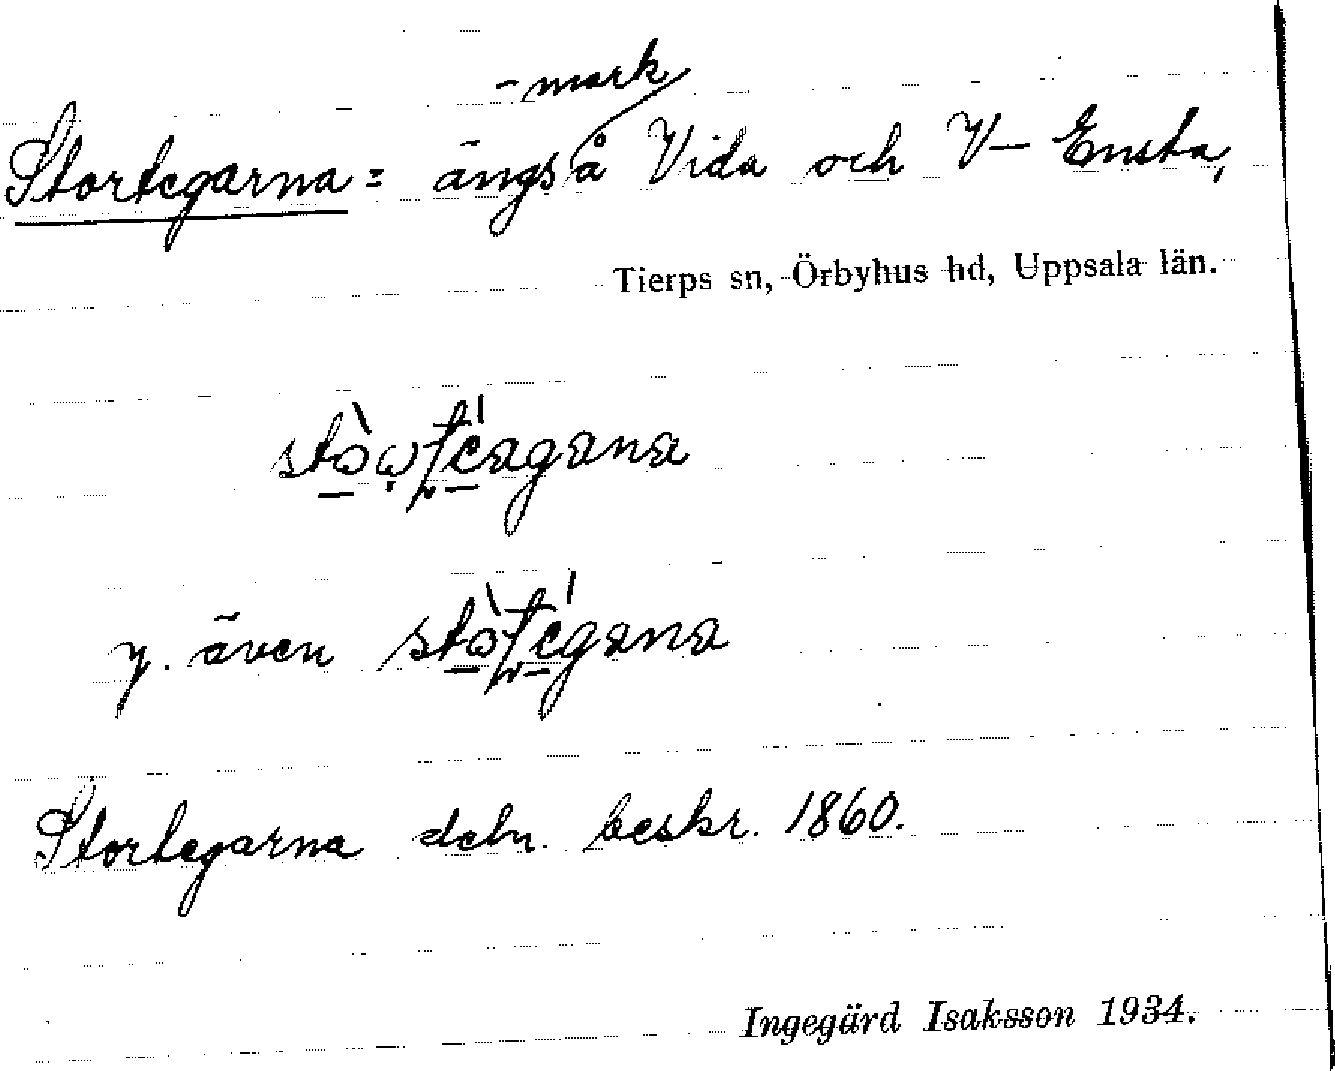 -mark
Stortegarna = ängs å Vida och V- Ensta,
Tierps sn, Örbyhus hd, Uppsala län.
y. även
Stortegarna debn. beskr. 1860.
Ingegärd Isaksson 1934.